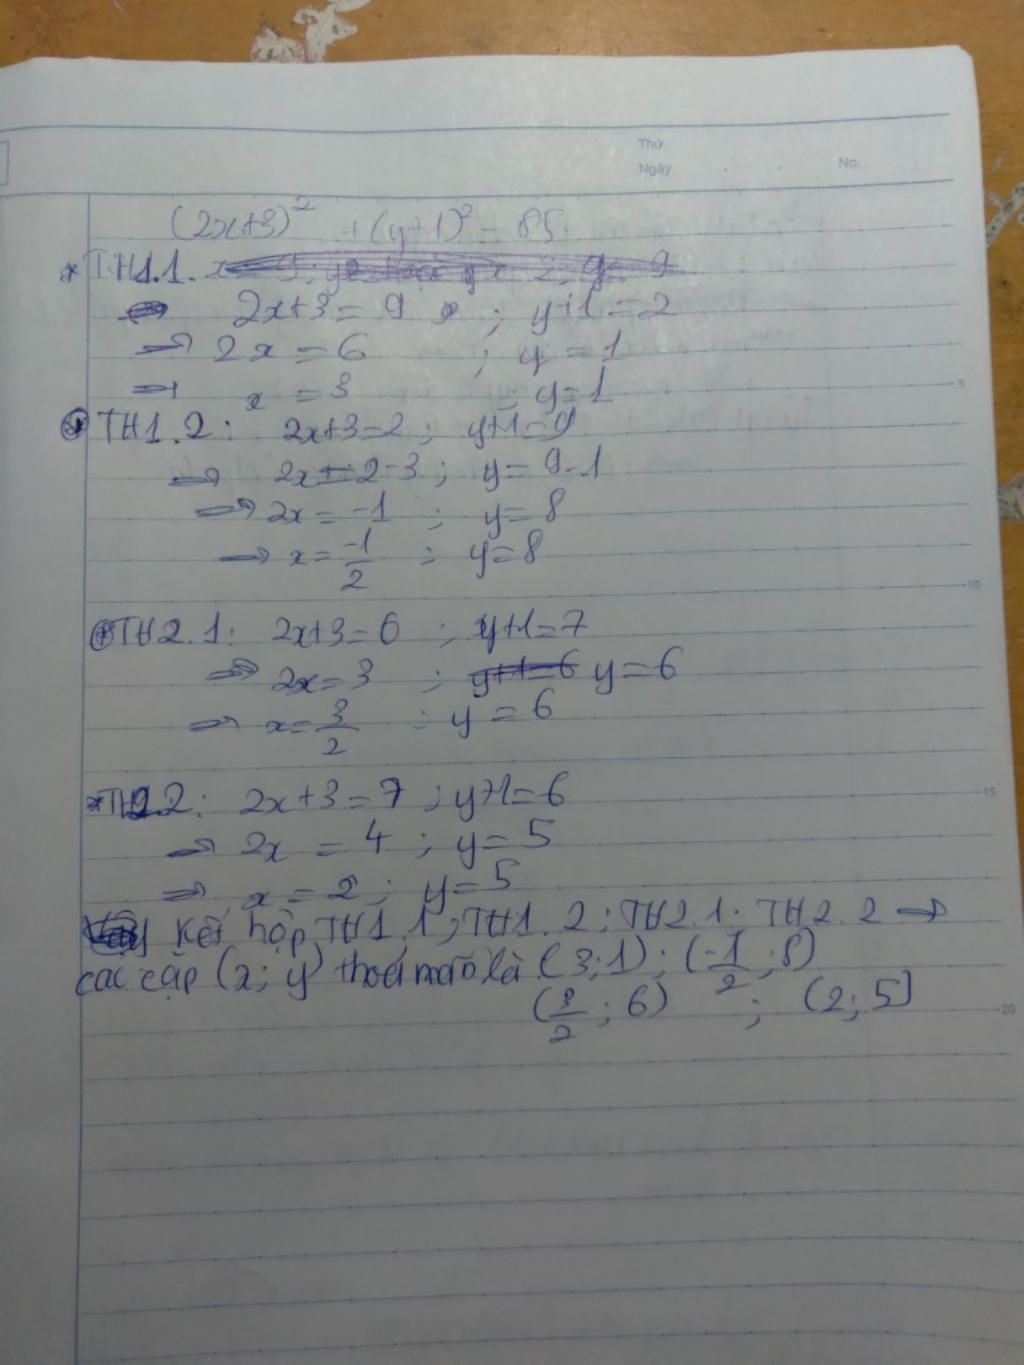 Thứ
Ngày No.
(2x+3)² + (y+1)² = 85
* TH1.1.
2x+3 = 9 ; y+1 = 2
=> 2x = 6 ; y = 1
=> x = 3 ; y=1
* TH1.2: 2x+3=2; y+1=9
=> 2x = 2-3; y= 9-1
=> 2x = -1 ; y= 8
=> x = -1/2 ; y=8
* TH2.1: 2x+3=6 ; y+1=7
=> 2x=3 ; y+1=6 y=6
=> x=3/2 ; y = 6
* TH2.2: 2x+3=7 ; y+1=6
=> 2x = 4 ; y= 5
=> x = 2 ; y=5
kết hợp TH1.1; TH1.2; TH2.1; TH2.2 =>
các cặp (x; y) thoả mãn là (3;1); (-1/2 ;8)
(3/2 ; 6) ; (2; 5)
5
10
15
20